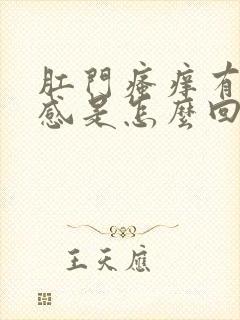 肛門瘙痒有
感是怎麼回
王天應